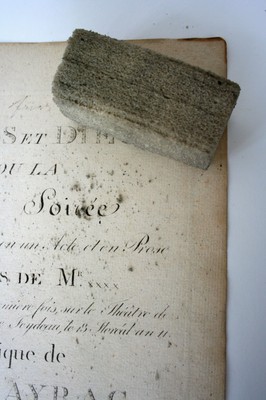 S ET DI
OU LA
Soirée
en un Acte et en Prose
S DE Mr. xxxx
mière fois, sur le Théâtre de
Feydeau, le 13 Floréal an 11.
ique de
AYRAC